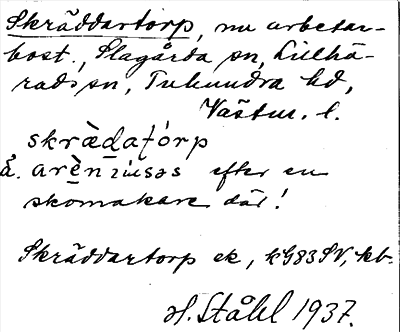 Skräddartorp, nu arbetar-
bost., Slagårda sn, Lillhä-
rads sn, Tuhundra hd,
Västm. l.
skræ̀daťórp
å. arèn iusəs efter en
skomakare där!
Skräddartorp ek, kG83SV, kb.
H. Ståhl 1937.